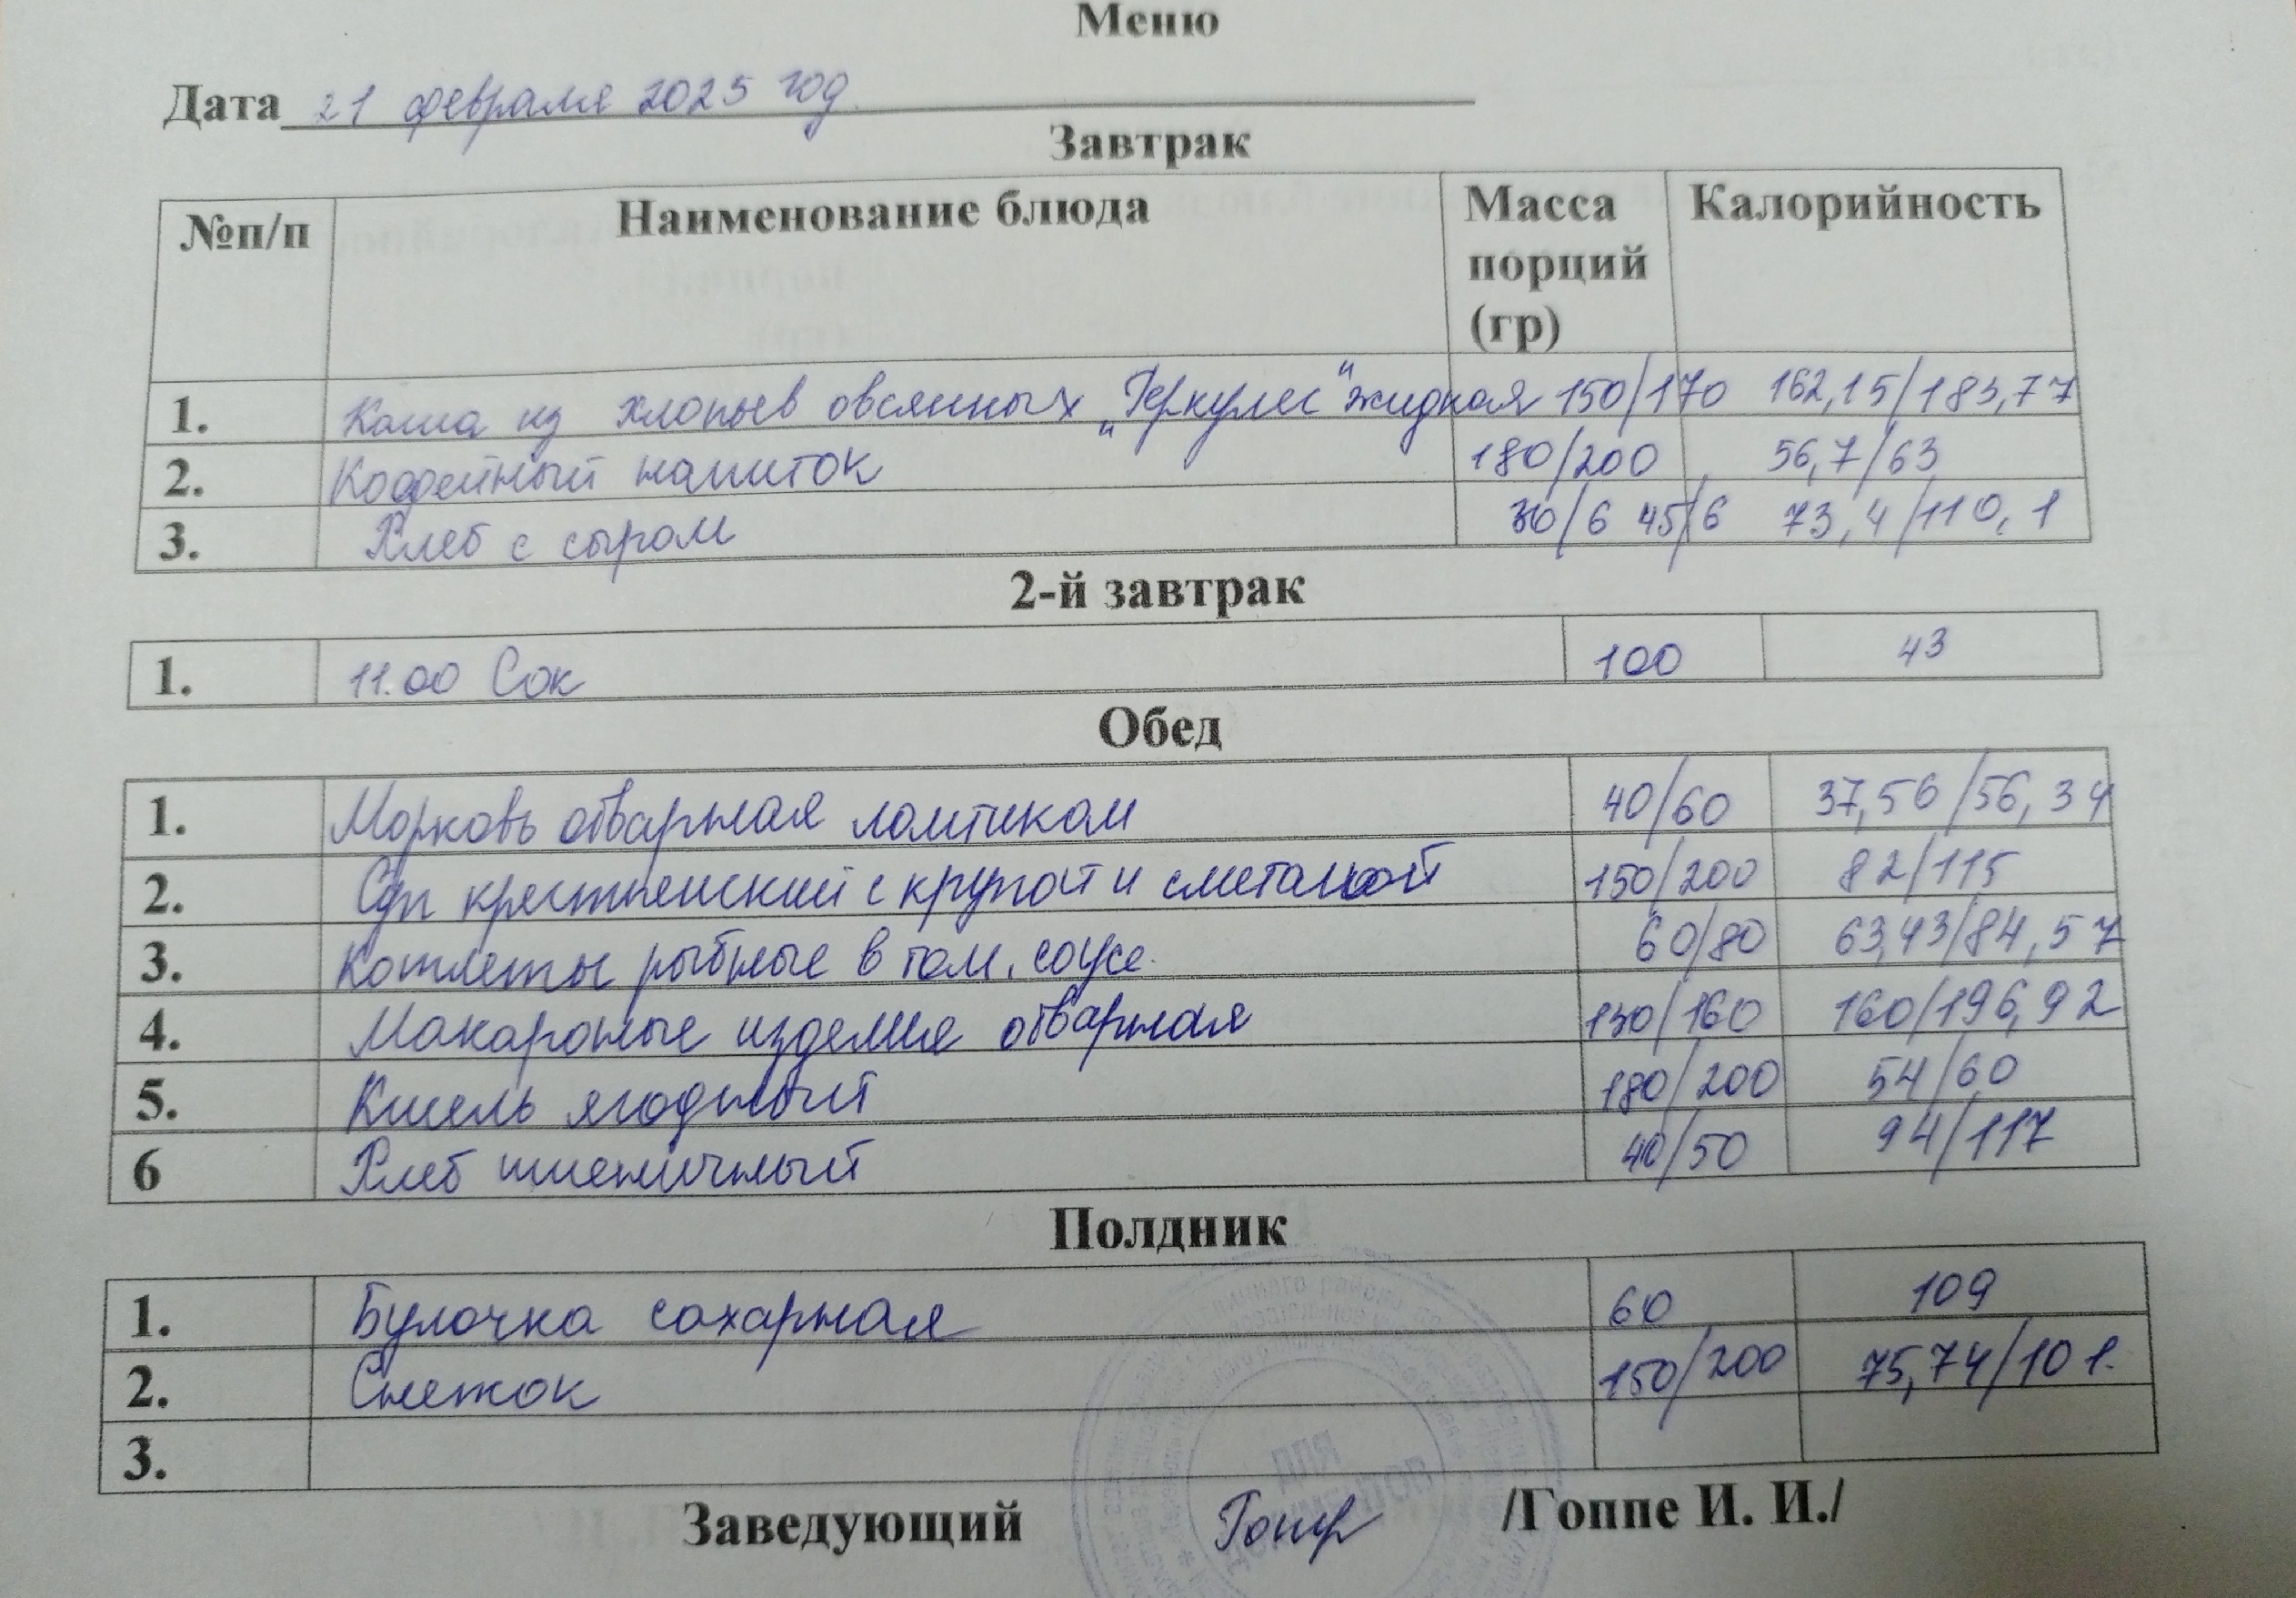 Меню
Дата 21 февраля 2025 год.
Завтрак
№п/п Наименование блюда Масса порций (гр) Калорийность
1. Каша из хлопьев овсянных „Геркулес" жидкая 150/170 162,15/183,77
2. Кофейный напиток 180/200 56,7/63
3. Хлеб с сыром 30/6 45/6 73,4/110,1
2-й завтрак
1. 11.00 Сок 100 43
Обед
1. Морковь отварная ломтиком 40/60 37,56/56,34
2. Суп крестьенский с крупой и сметаной 150/200 82/115
3. Котлеты рыбные в том. соусе. 60/80 63,43/84,57
4. Макароные изделия отварная 130/160 160/196,92
5. Кисель ягодный 180/200 54/60
6 Хлеб пшеничный 40/50 94/117
Полдник
1. Булочка сахарная 60 109
2. Снежок 150/200 75,74/101.
3.
Заведующий /Гоппе И. И./
ДЛЯ
ДОКУМЕНТОВ